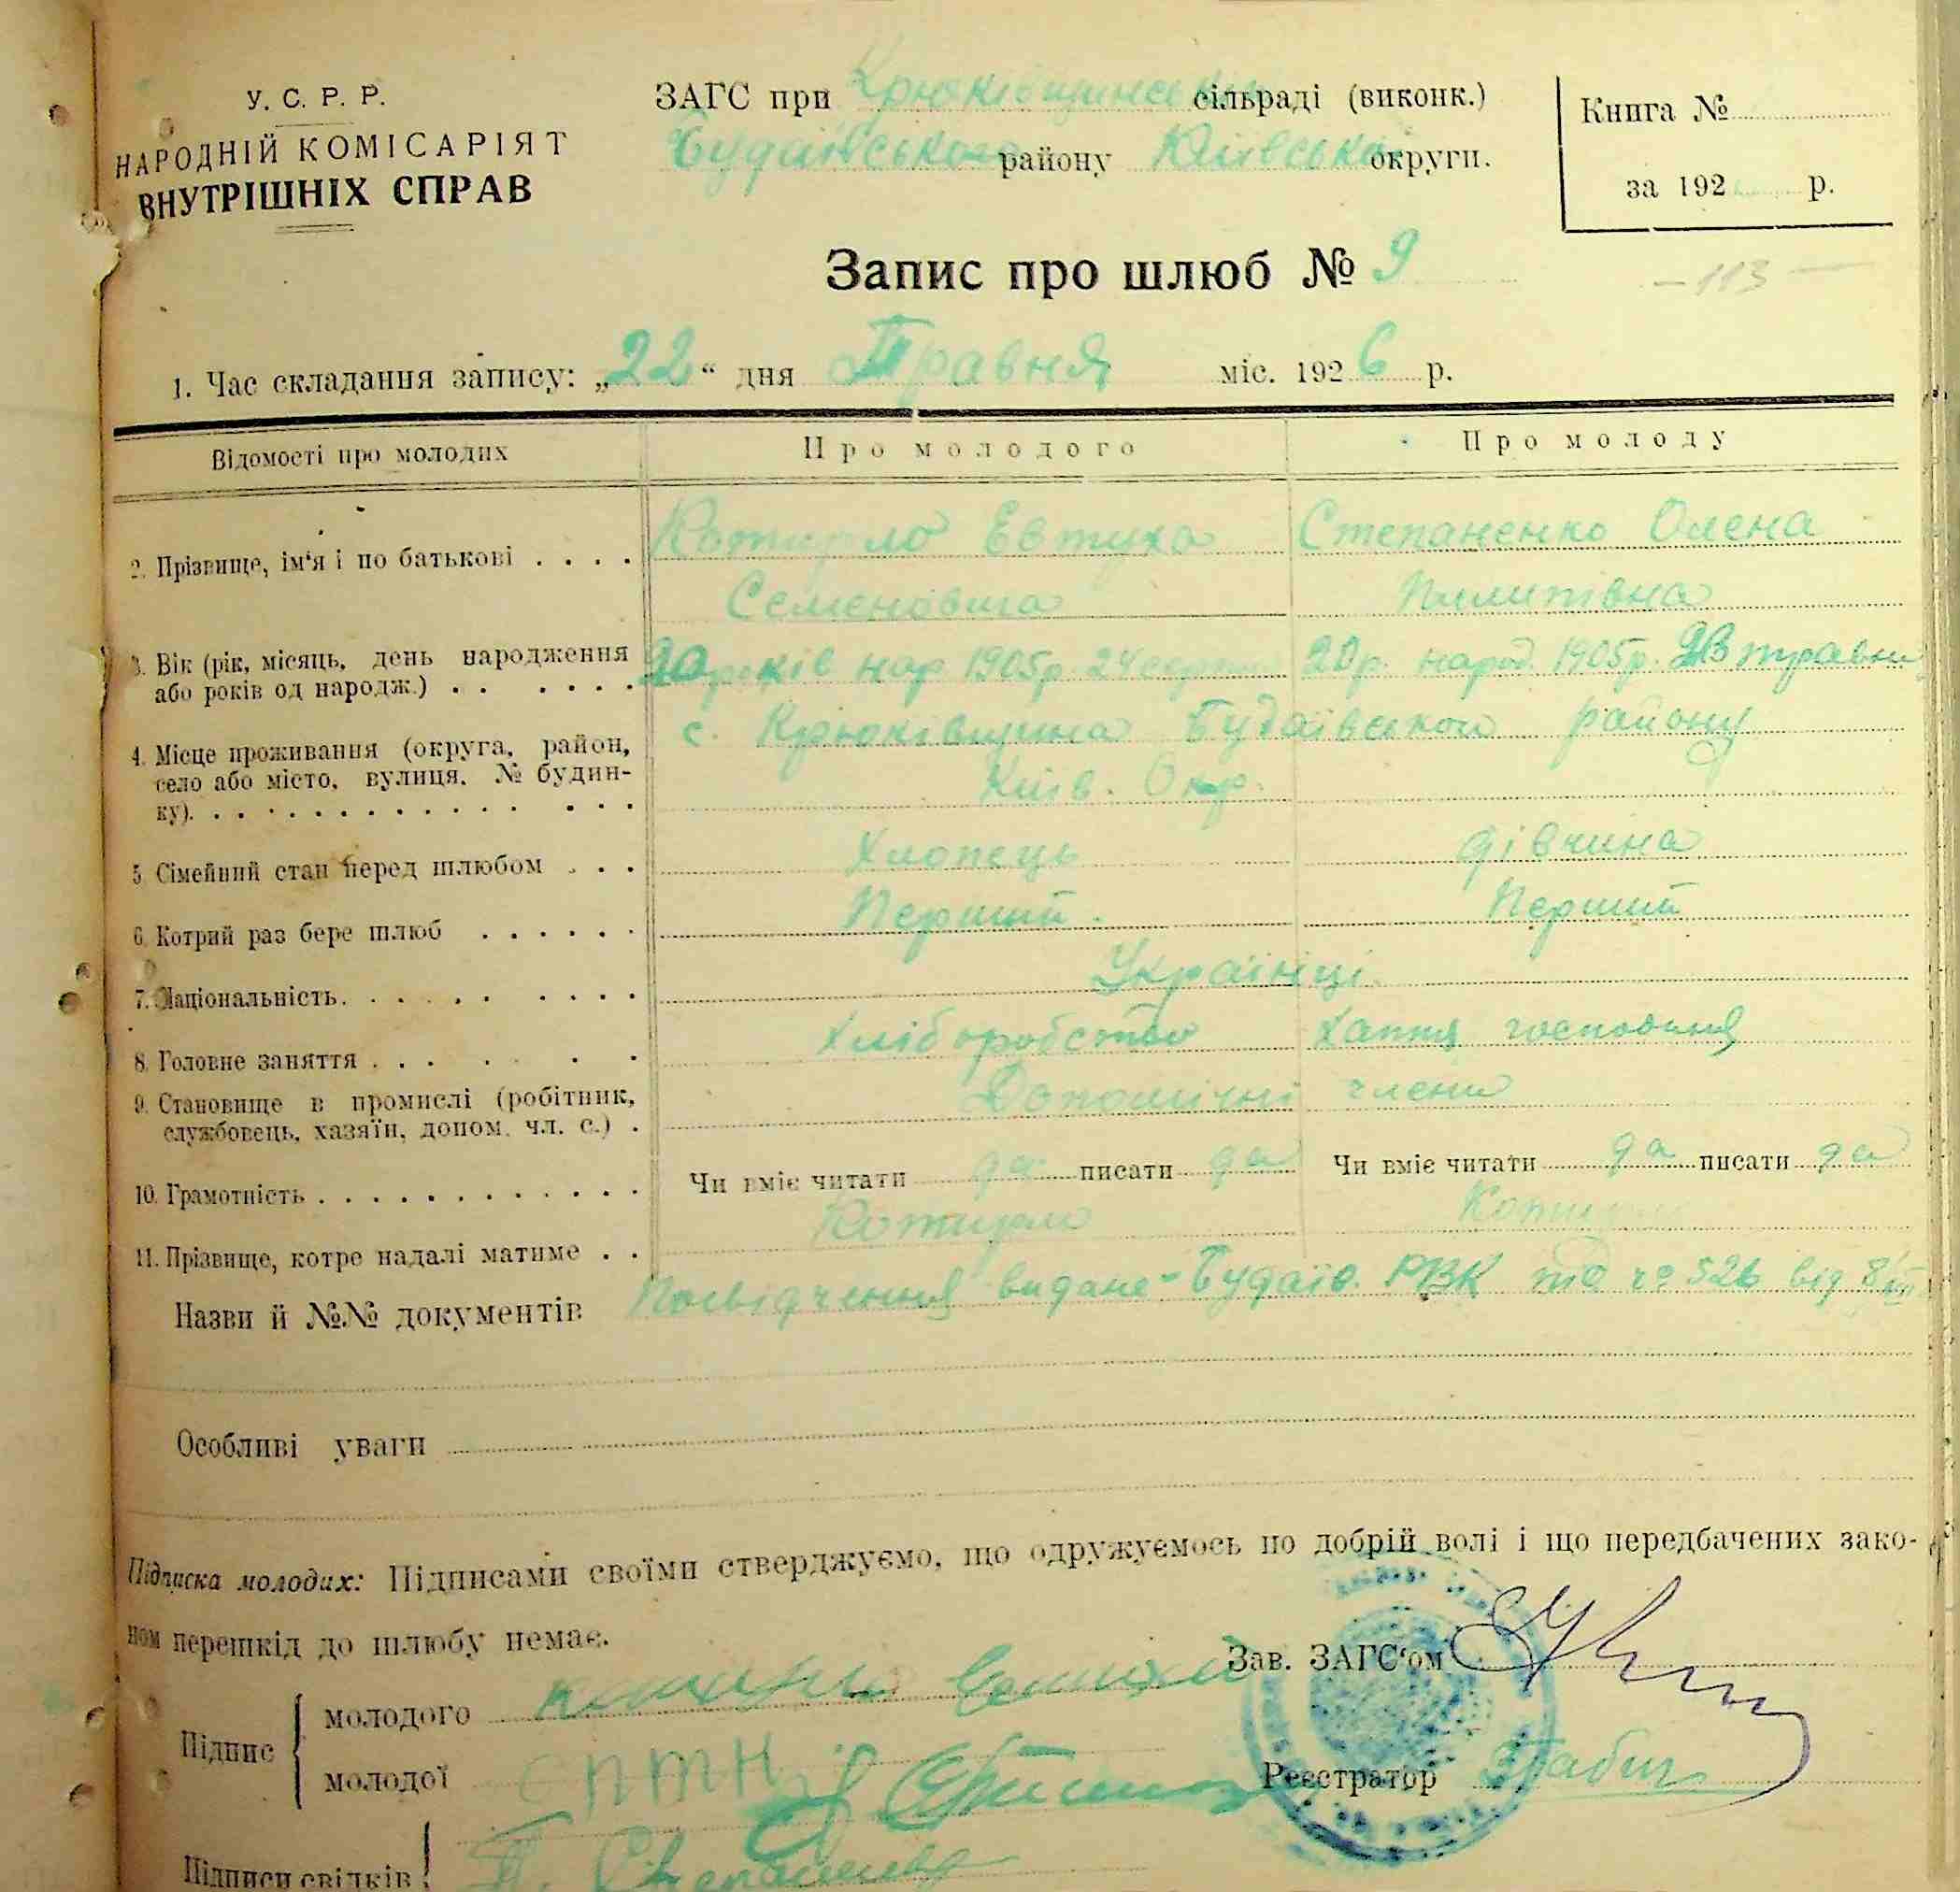 У. С. Р. Р.
НАРОДНІЙ КОМІСАРІЯТ
ВНУТРІШНІХ СПРАВ
ЗАГС при Крюківщинській сільраді (виконк.)
Будаївського району Київської округи.
Книга №
за 192 р.
Запис про шлюб № 9
— 113 —
1. Час складання запису: „22“ дня Травня міс. 1926 р.
Відомості про молодих Про молодого Про молоду
2. Прізвище, ім'я і по батькові . . . . Котирло Евтуха Степаненко Олена
Семеновича Пилипівна
3. Вік (рік, місяць, день народження 20 років нар 1905р 24 20 р. народ. 1905р. 23 травня
або років од народж.) . . . . . .
с. Крюківщина Будаївського району
4. Місце проживання (округа, район,
село або місто, вулиця, № будин- Київ. Окр.
ку). . . . . . . . . . . . . .
5. Сімейний стан перед шлюбом . . . Хлопець дівчина
6. Котрий раз бере шлюб . . . . . . Перший. Перший
7. Національність. . . . . . . . . Українці
8. Головне заняття . . . . . . Хліборобство Хатня господиня
9. Становище в промислі (робітник, Допомічні члени
службовець, хазяїн, допом. чл. с.) .
10. Грамотність . . . . . . . . . . . . Чи вміє читати да писати да Чи вміє читати да писати да
11. Прізвище, котре надалі матиме . . Котирло
Назви й №№ документів Посвідчення видане Будаїв. РВК під № 526 від 8/III
Особливі уваги
Підписка молодих: Підписами своїми стверджуємо, що одружуємось по добрій волі і що передбачених зако-
ном перешкід до шлюбу немає.
Зав. ЗАГС'ом
Підпис
молодого
молодої
Реєстратор
Підписи свідків